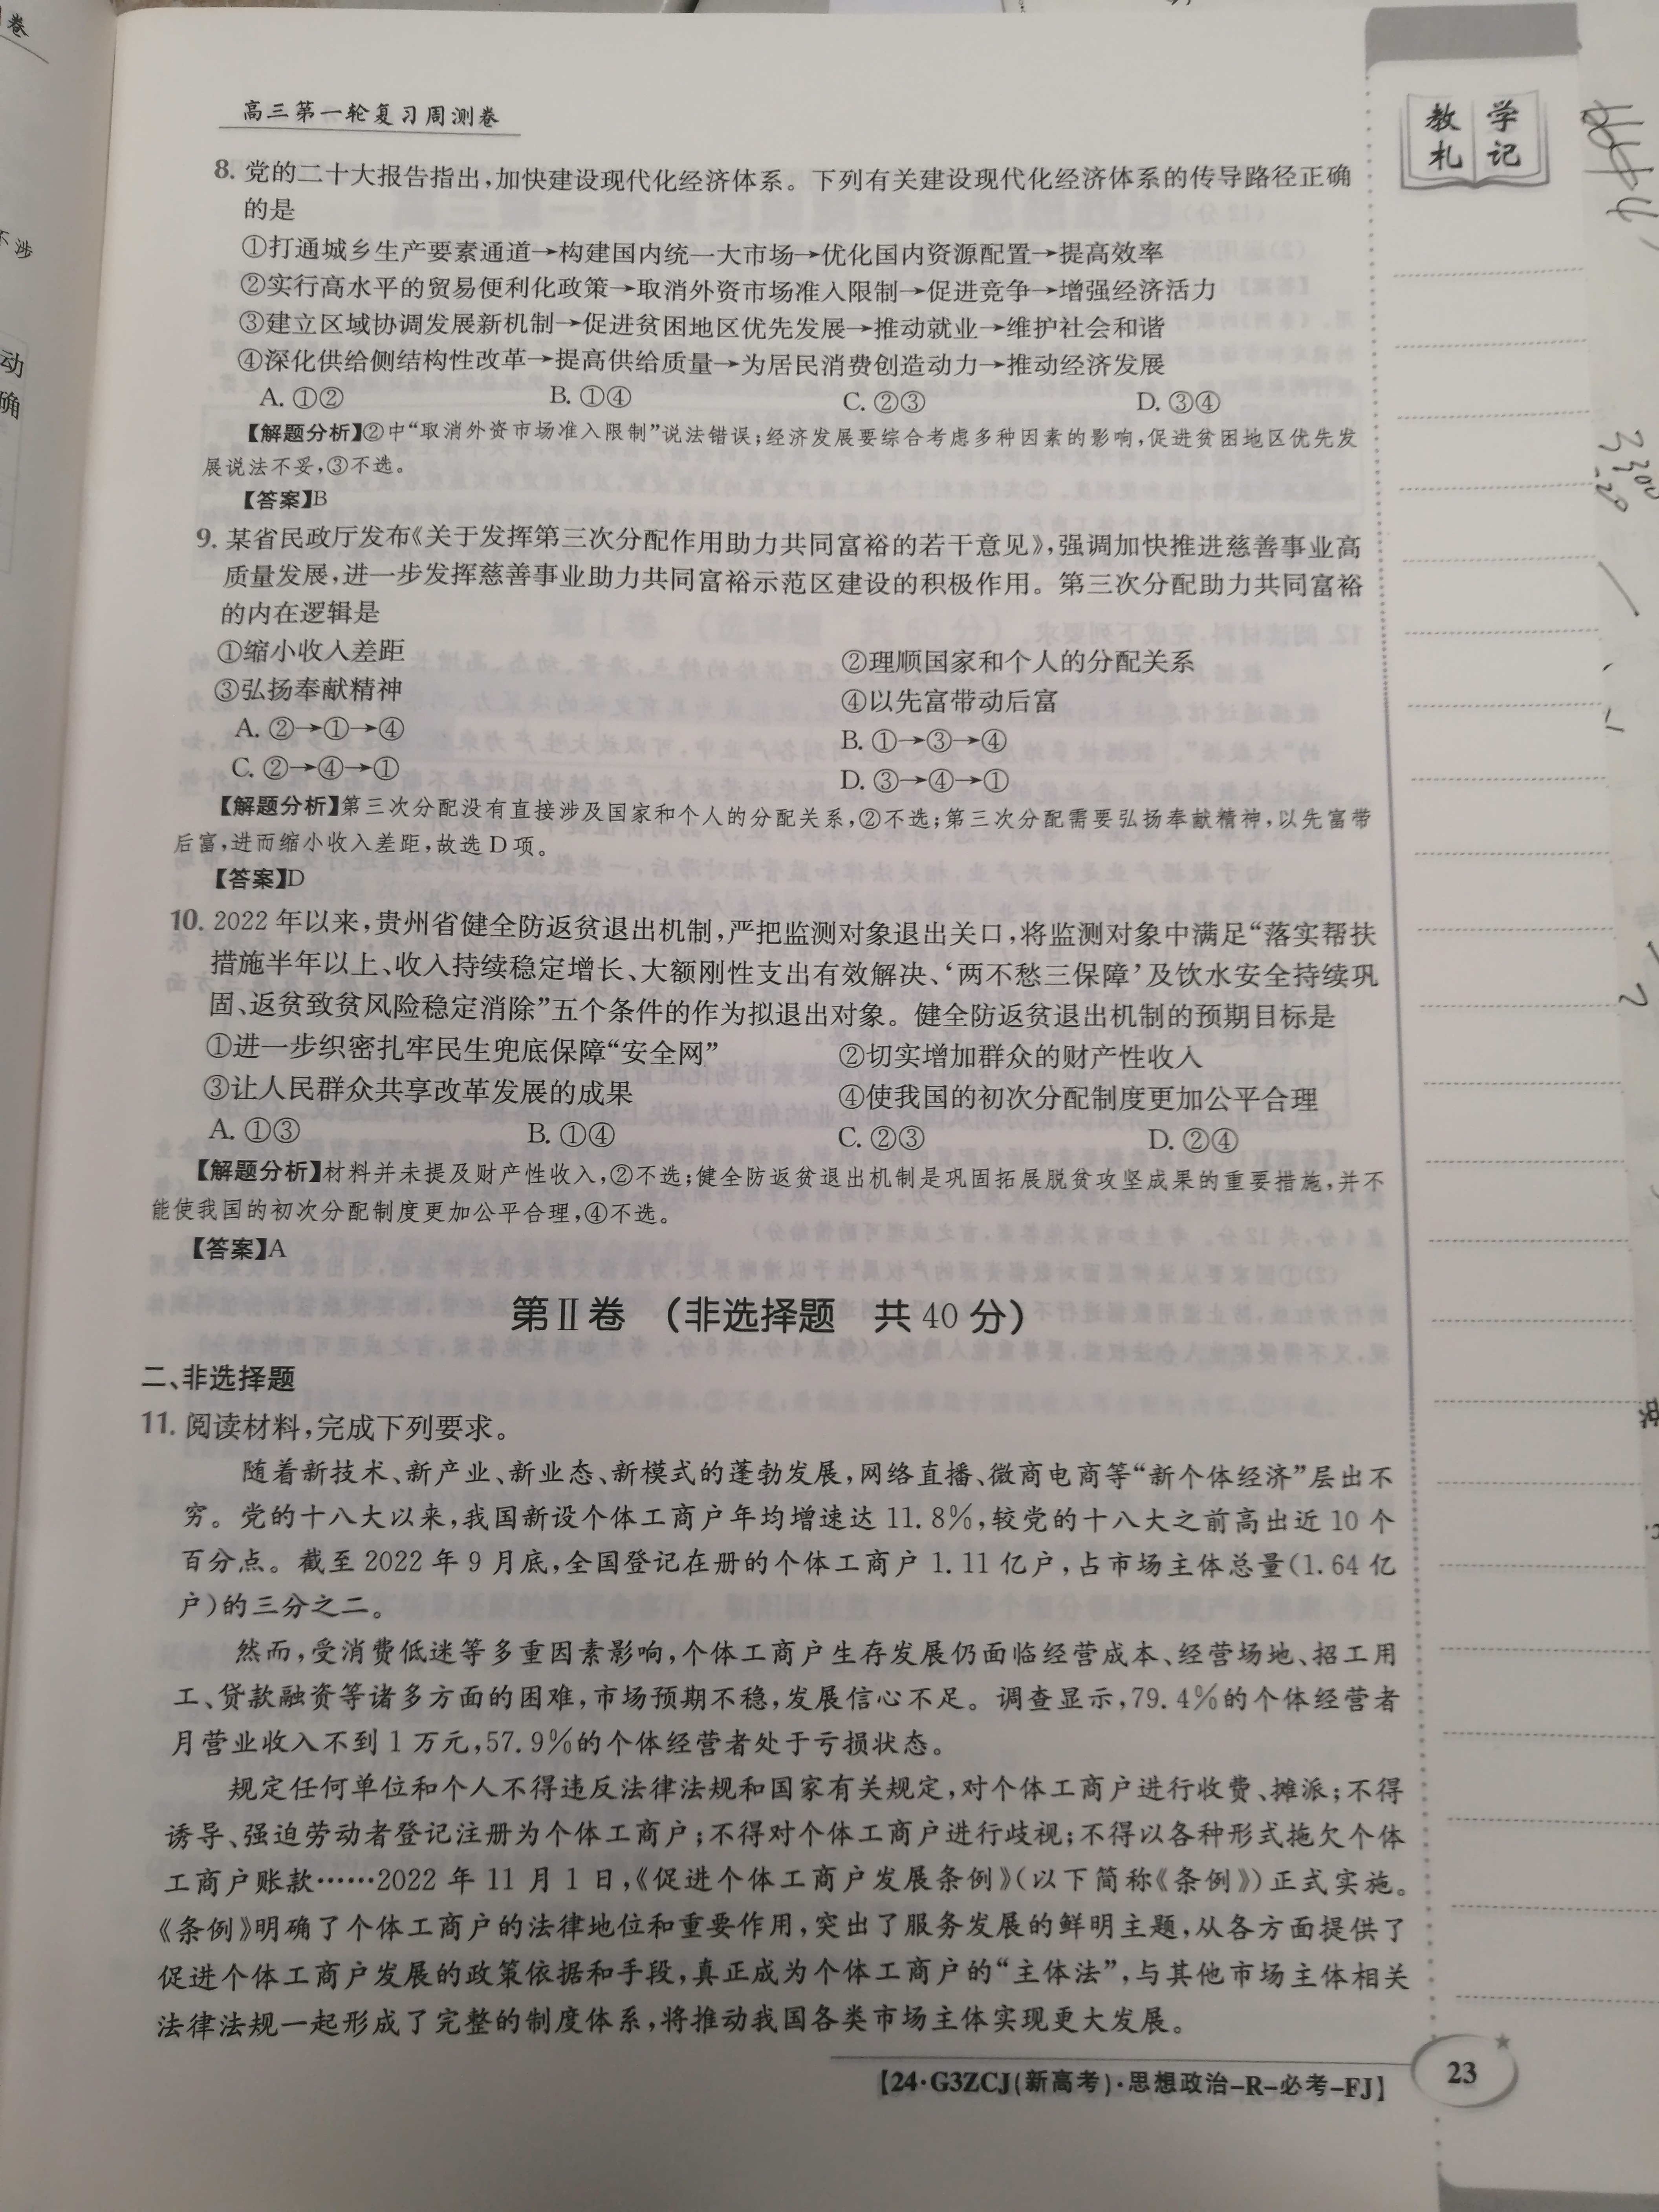 高三第一轮复习周测卷
教 学
札 记
8. 党的二十大报告指出,加快建设现代化经济体系。下列有关建设现代化经济体系的传导路径正确
的是
①打通城乡生产要素通道→构建国内统一大市场→优化国内资源配置→提高效率
②实行高水平的贸易便利化政策→取消外资市场准入限制→促进竞争→增强经济活力
③建立区域协调发展新机制→促进贫困地区优先发展→推动就业→维护社会和谐
④深化供给侧结构性改革→提高供给质量→为居民消费创造动力→推动经济发展
A. ①② B. ①④ C. ②③ D. ③④
【解题分析】②中“取消外资市场准入限制”说法错误;经济发展要综合考虑多种因素的影响,促进贫困地区优先发
展说法不妥,③不选。
【答案】B
9. 某省民政厅发布《关于发挥第三次分配作用助力共同富裕的若干意见》,强调加快推进慈善事业高
质量发展,进一步发挥慈善事业助力共同富裕示范区建设的积极作用。第三次分配助力共同富裕
的内在逻辑是
①缩小收入差距 ②理顺国家和个人的分配关系
③弘扬奉献精神 ④以先富带动后富
A. ②→①→④ B. ①→③→④
C. ②→④→① D. ③→④→①
【解题分析】第三次分配没有直接涉及国家和个人的分配关系,②不选;第三次分配需要弘扬奉献精神,以先富带
后富,进而缩小收入差距,故选 D 项。
【答案】D
10. 2022 年以来,贵州省健全防返贫退出机制,严把监测对象退出关口,将监测对象中满足“落实帮扶
措施半年以上、收入持续稳定增长、大额刚性支出有效解决、‘两不愁三保障’及饮水安全持续巩
固、返贫致贫风险稳定消除”五个条件的作为拟退出对象。健全防返贫退出机制的预期目标是
①进一步织密扎牢民生兜底保障“安全网” ②切实增加群众的财产性收入
③让人民群众共享改革发展的成果 ④使我国的初次分配制度更加公平合理
A. ①③ B. ①④ C. ②③ D. ②④
【解题分析】材料并未提及财产性收入,②不选;健全防返贫退出机制是巩固拓展脱贫攻坚成果的重要措施,并不
能使我国的初次分配制度更加公平合理,④不选。
【答案】A
第Ⅱ卷 (非选择题 共 40 分)
二、非选择题
11. 阅读材料,完成下列要求。
随着新技术、新产业、新业态、新模式的蓬勃发展,网络直播、微商电商等“新个体经济”层出不
穷。党的十八大以来,我国新设个体工商户年均增速达 11.8%,较党的十八大之前高出近 10 个
百分点。截至 2022 年 9 月底,全国登记在册的个体工商户 1.11 亿户,占市场主体总量(1.64 亿
户)的三分之二。
然而,受消费低迷等多重因素影响,个体工商户生存发展仍面临经营成本、经营场地、招工用
工、贷款融资等诸多方面的困难,市场预期不稳,发展信心不足。调查显示,79.4%的个体经营者
月营业收入不到 1 万元,57.9%的个体经营者处于亏损状态。
规定任何单位和个人不得违反法律法规和国家有关规定,对个体工商户进行收费、摊派;不得
诱导、强迫劳动者登记注册为个体工商户;不得对个体工商户进行歧视;不得以各种形式拖欠个体
工商户账款……2022 年 11 月 1 日,《促进个体工商户发展条例》(以下简称《条例》)正式实施。
《条例》明确了个体工商户的法律地位和重要作用,突出了服务发展的鲜明主题,从各方面提供了
促进个体工商户发展的政策依据和手段,真正成为个体工商户的“主体法”,与其他市场主体相关
法律法规一起形成了完整的制度体系,将推动我国各类市场主体实现更大发展。
【24·G3ZCJ(新高考)·思想政治-R-必考-FJ】
23